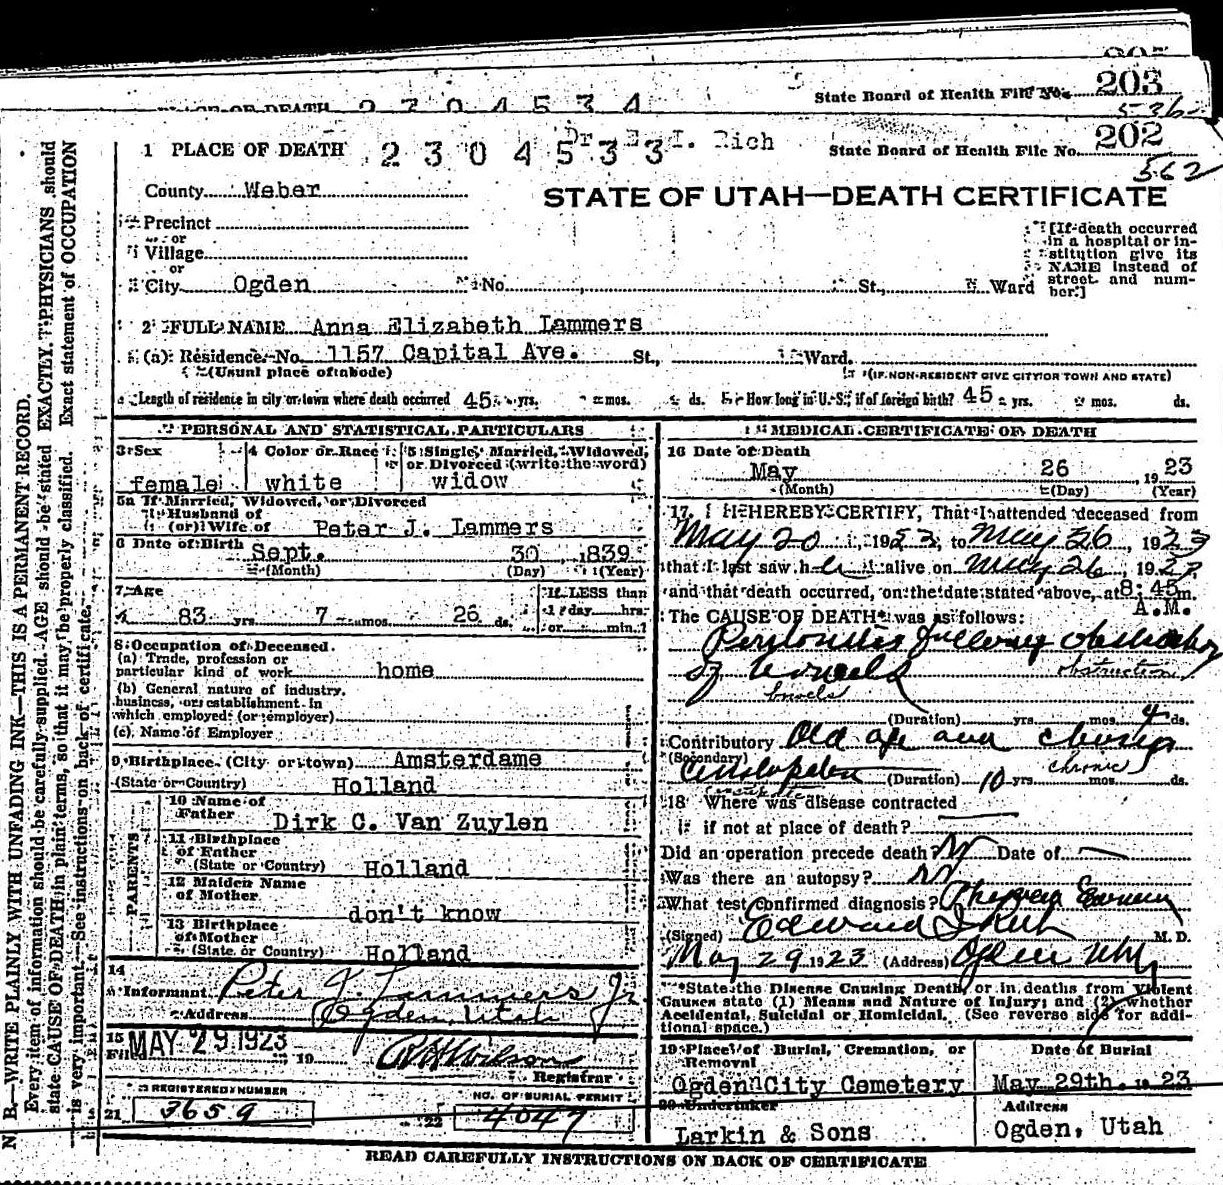 203
PLACE OF DEATH 2304534 State Board of Health File No.
536
Dr. E. I. Rich 202
1 PLACE OF DEATH 2304533 State Board of Health File No.
562
County Weber
STATE OF UTAH—DEATH CERTIFICATE
Precinct
or
Village
or
City Ogden No. St., Ward
[If death occurred
in a hospital or in-
stitution give its
NAME instead of
street and num-
ber.]
2 FULL NAME Anna Elizabeth Lammers
(a) Residence. No. 1157 Capital Ave. St., Ward.
(Usual place of abode) (IF NON-RESIDENT GIVE CITY OR TOWN AND STATE)
Length of residence in city or town where death occurred 45 yrs. mos. ds. How long in U. S., if of foreign birth? 45 yrs. mos. ds.
PERSONAL AND STATISTICAL PARTICULARS
3 Sex
female
4 Color or Race
white
5 Single, Married, Widowed,
or Divorced (write the word)
widow
5a If Married, Widowed, or Divorced
Husband of
(or) Wife of Peter J. Lammers
6 Date of Birth Sept. 30 1839
(Month) (Day) (Year)
7 Age
83 yrs. 7 mos. 26 ds.
If LESS than
1 day hrs.
or min.?
8 Occupation of Deceased.
(a) Trade, profession or
particular kind of work home
(b) General nature of industry,
business, or establishment in
which employed (or employer)
(c) Name of Employer
9 Birthplace (City or town) Amsterdame
(State or Country) Holland
PARENTS
10 Name of
Father Dirk C. Van Zuylen
11 Birthplace
of Father
(State or Country) Holland
12 Maiden Name
of Mother
don't know
13 Birthplace
of Mother
(State or Country) Holland
14
Informant Peter J. Lammers Jr.
Address Ogden, Utah
15
Filed MAY 29 1923 19
Wilson
Registrar
REGISTERED NUMBER NO. OF BURIAL PERMIT
21 3659 22 4047
MEDICAL CERTIFICATE OF DEATH
16 Date of Death
May 26 1923
(Month) (Day) (Year)
17 I HEREBY CERTIFY, That I attended deceased from
May 20, 1923, to May 26, 1923
that I last saw her alive on May 26, 1923
and that death occurred, on the date stated above, at 8:45 m.
A.M.
The CAUSE OF DEATH* was as follows:
Peritonitis following obstruction
obstruction
of bowels
bowels
(Duration) yrs. mos. 4 ds.
Contributory Old age and chronic
(Secondary) chronic
(Duration) 10 yrs. mos. ds.
18 Where was disease contracted
if not at place of death?
Did an operation precede death? No Date of —
Was there an autopsy? No
What test confirmed diagnosis? Physical
(Signed) Edward I Rich M. D.
May 29 1923 (Address) Ogden Utah
*State the Disease Causing Death, or in deaths from Violent
Causes state (1) Means and Nature of Injury; and (2) whether
Accidental, Suicidal or Homicidal. (See reverse side for addi-
tional space.)
19 Place of Burial, Cremation, or
Removal
Ogden City Cemetery
Date of Burial
May 29th. 1923
20 Undertaker
Larkin & Sons
Address
Ogden, Utah
READ CAREFULLY INSTRUCTIONS ON BACK OF CERTIFICATE
N. B.—WRITE PLAINLY WITH UNFADING INK—THIS IS A PERMANENT RECORD.
Every item of information should be carefully supplied. AGE should be stated EXACTLY. PHYSICIANS should
state CAUSE OF DEATH in plain terms, so that it may be properly classified. Exact statement of OCCUPATION
is very important. See instructions on back of certificate.